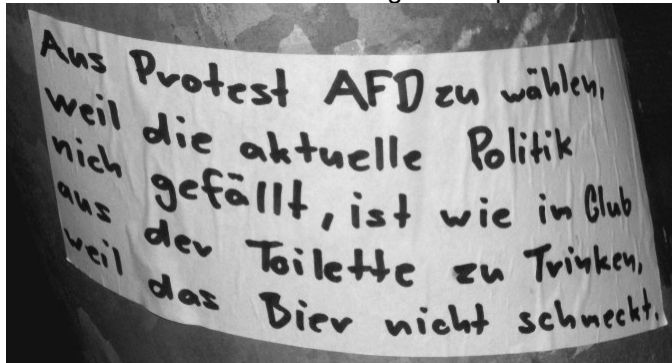 Aus Protest AFD zu wählen,
weil die aktuelle Politik
nich gefällt, ist wie in Club
aus der Toilette zu Trinken,
weil das Bier nicht schmeckt.